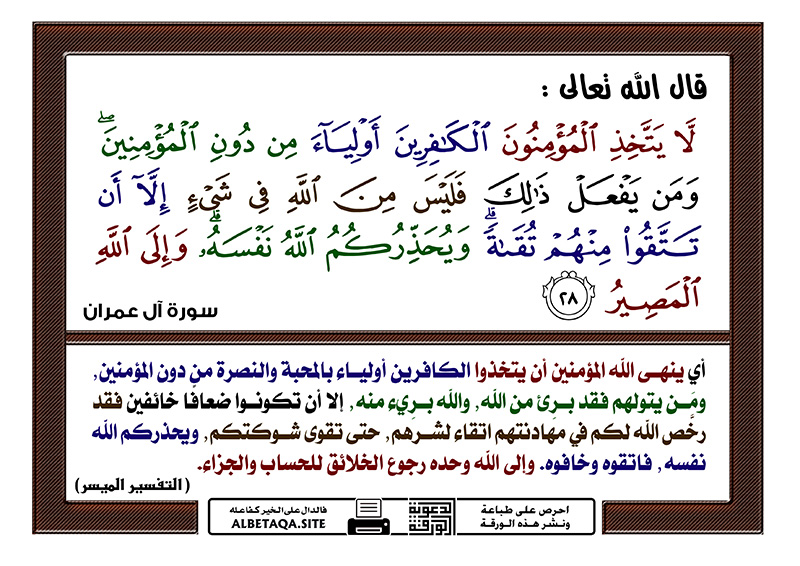 قال الله تعالى :
لَّا يَتَّخِذِ ٱلۡمُؤۡمِنُونَ ٱلۡكَٰفِرِينَ أَوۡلِيَآءَ مِن دُونِ ٱلۡمُؤۡمِنِينَۖ
وَمَن يَفۡعَلۡ ذَٰلِكَ فَلَيۡسَ مِنَ ٱللَّهِ فِي شَيۡءٍ إِلَّآ أَن
تَتَّقُواْ مِنۡهُمۡ تُقَىٰةٗۗ وَيُحَذِّرُكُمُ ٱللَّهُ نَفۡسَهُۥۗ وَإِلَى ٱللَّهِ
ٱلۡمَصِيرُ ٢٨
سورة آل عمران
أي ينهى الله المؤمنين أن يتخذوا الكافرين أولياء بالمحبة والنصرة من دون المؤمنين,
ومَن يتولهم فقد برِئ من الله, والله بريء منه, إلا أن تكونوا ضعافًا خائفين فقد
رخَّص الله لكم في مهادنتهم اتقاء لشرهم, حتى تقوى شوكتكم, ويحذركم الله
نفسه, فاتقوه وخافوه. وإلى الله وحده رجوع الخلائق للحساب والجزاء.
(التفسير الميسر)
احرص على طباعة
ونشر هذه الورقة
الدعوية
الورقة
فالدال على الخير كفاعله
ALBETAQA.SITE